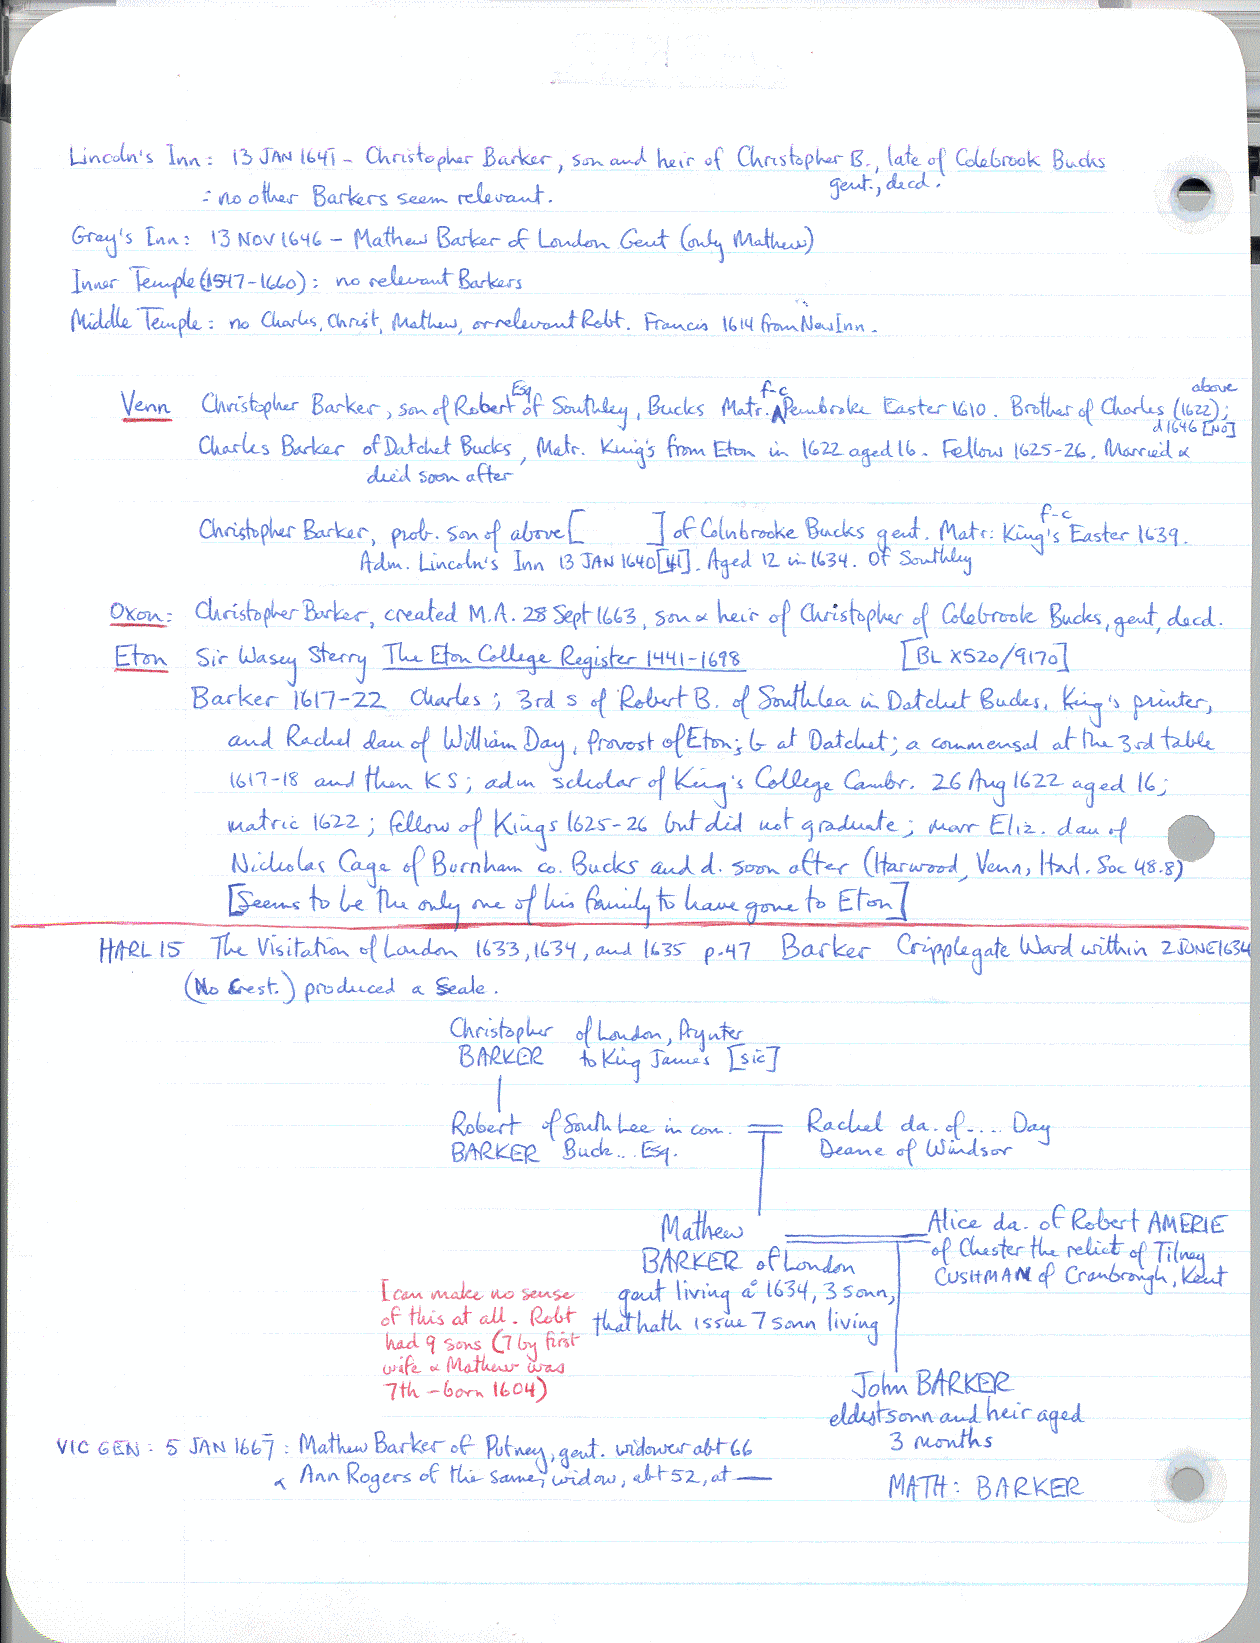 Lincoln's Inn: 13 JAN 1641 - Christopher Barker, son and heir of Christopher B., late of Colebrook Bucks
gent., decd.
: no other Barkers seem relevant.
Gray's Inn: 13 NOV 1646 - Mathew Barker of London Gent (only Mathew)
Inner Temple (1547-1660): no relevant Barkers
Middle Temple: no Charles, Christ, Mathew, or relevant Robt. Francis 1614 from New Inn.
Venn Christopher Barker, son of Robert Esq of Southley, Bucks Matr. f-c Pembroke Easter 1610. Brother of Charles (1622); above
d 1646 [NO]
Charles Barker of Datchet Bucks, Matr. King's from Eton in 1622 aged 16. Fellow 1625-26. Married &
died soon after
Christopher Barker, prob. son of above [ ] of Colnbrooke Bucks gent. Matr: King's f-c Easter 1639.
Adm. Lincoln's Inn 13 JAN 1640[41]. Aged 12 in 1634. Of Southley
Oxon: Christopher Barker, created M.A. 28 Sept 1663, son & heir of Christopher of Colebrook Bucks, gent, decd.
Eton Sir Wasey Sterry The Eton College Register 1441-1698 [BL X520/9170]
Barker 1617-22 Charles; 3rd s of Robert B. of Southlea in Datchet Bucks, King's printer,
and Rachel dau of William Day, Provost of Eton; b at Datchet; a commensal at the 3rd table
1617-18 and then KS; adm scholar of King's College Cambr. 26 Aug 1622 aged 16;
matric 1622; fellow of Kings 1625-26 but did not graduate; marr Eliz. dau of
Nicholas Cage of Burnham co. Bucks and d. soon after (Harwood, Venn, Harl. Soc 48.8)
[Seems to be the only one of his family to have gone to Eton]
HARL 15 The Visitation of London 1633, 1634, and 1635 p.47 Barker Cripplegate Ward within 2 JUNE 1634
(No Crest.) produced a Seale.
Christopher of London, Prynter
BARKER to King James [sic]
Robert of South Lee in com. = Rachel da. of .... Day
BARKER Buck... Esq. Deane of Windsor
Mathew Alice da. of Robert AMERIE
BARKER of London of Chester the relict of Tilney
CUSHMAN of Cranbrough, Kent
gent living aº 1634, 3 sonn,
that hath issue 7 sonn living
[I can make no sense
of this at all. Robt
had 9 sons (7 by first
wife & Mathew was
7th - born 1604)
John BARKER
eldest sonn and heir aged
3 months
VIC GEN: 5 JAN 1667: Mathew Barker of Putney, gent. widower abt 66
& Ann Rogers of the same, widow, abt 52, at —
MATH: BARKER